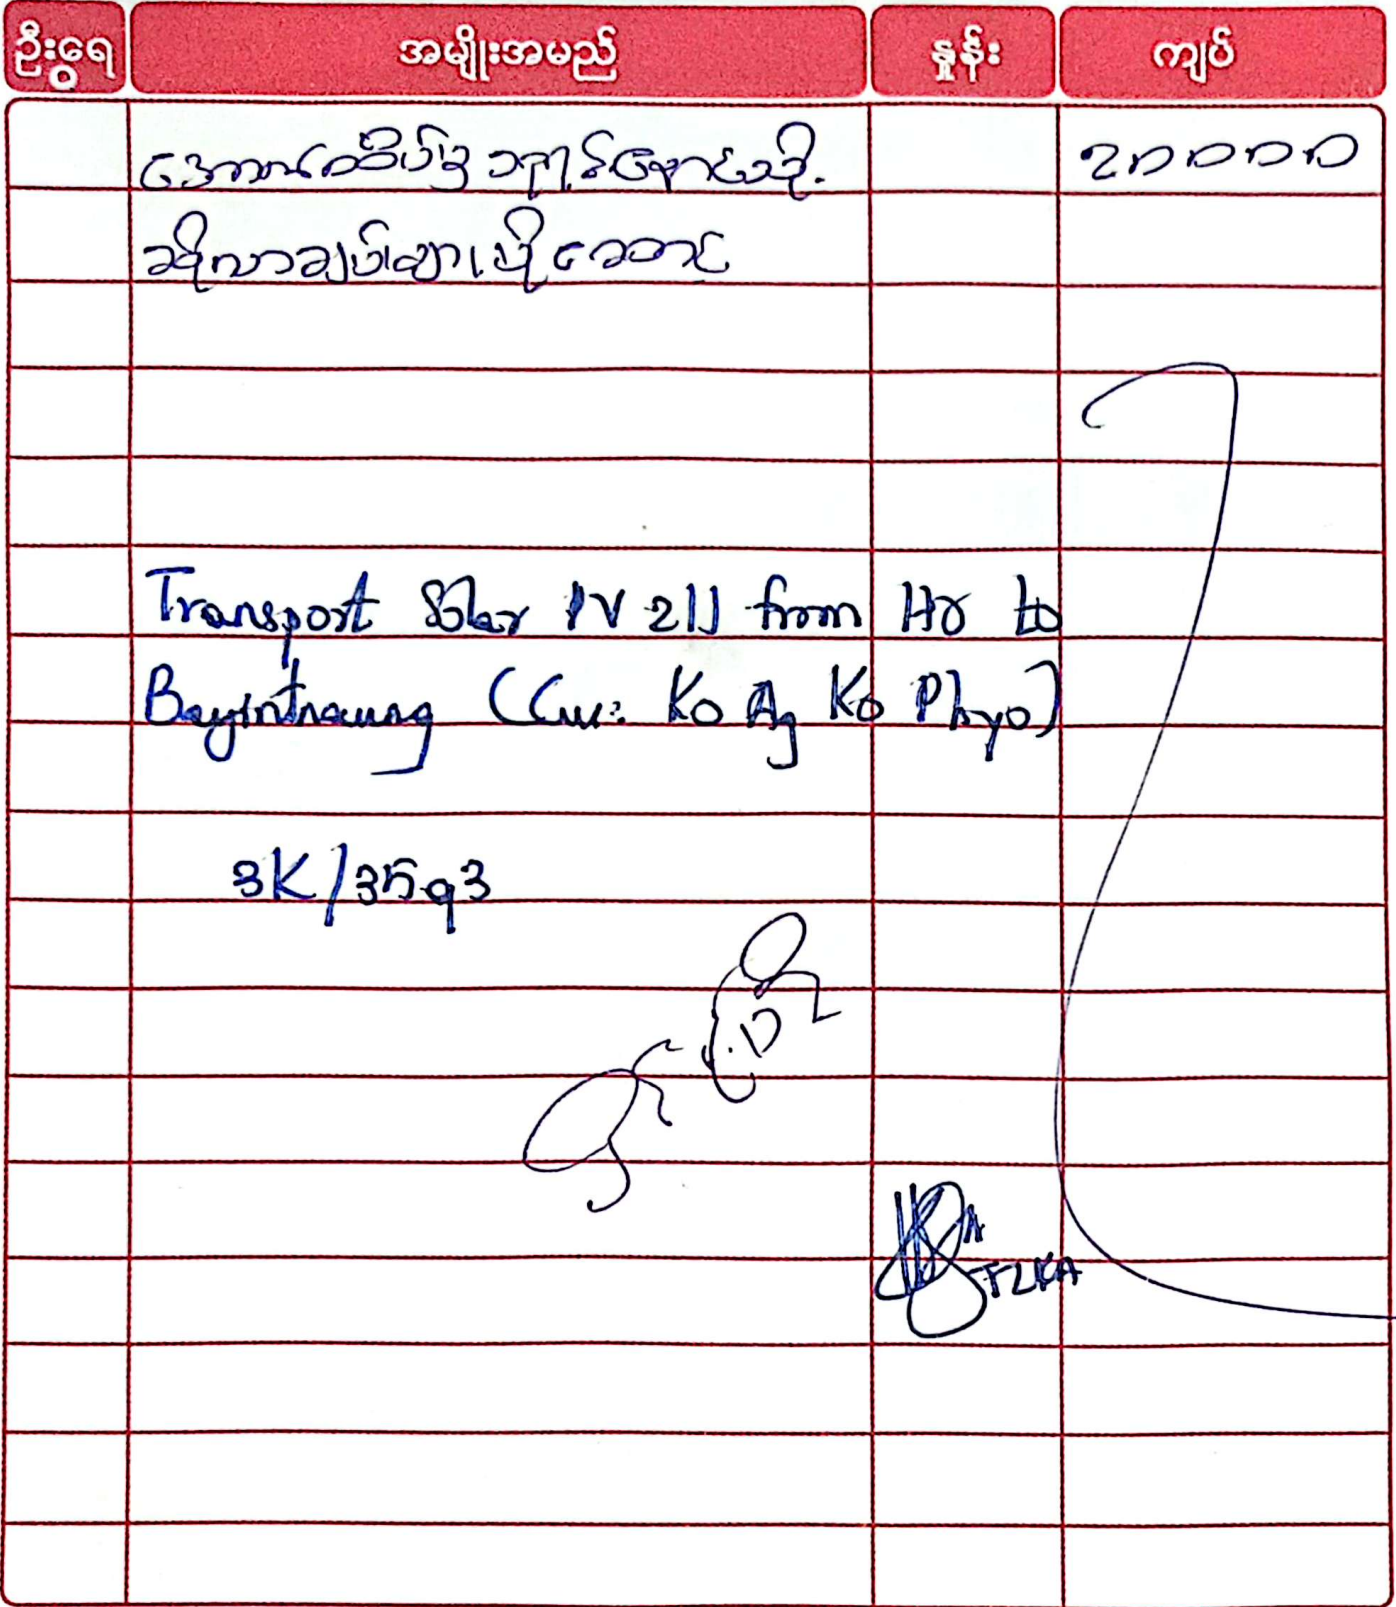 ဦးရေ အမျိုးအမည် နှုန်း ကျပ်
အောင်ထိပ်မှ ဘုရင့်နောင်သို့ ၇၀၀၀၀
ဆိုလာချပ်များပို့ဆောင်
Transport Solar PV 211 from HO to
Bayintnaung (Cus: Ko Ag Ko Phyo)
3K/3593